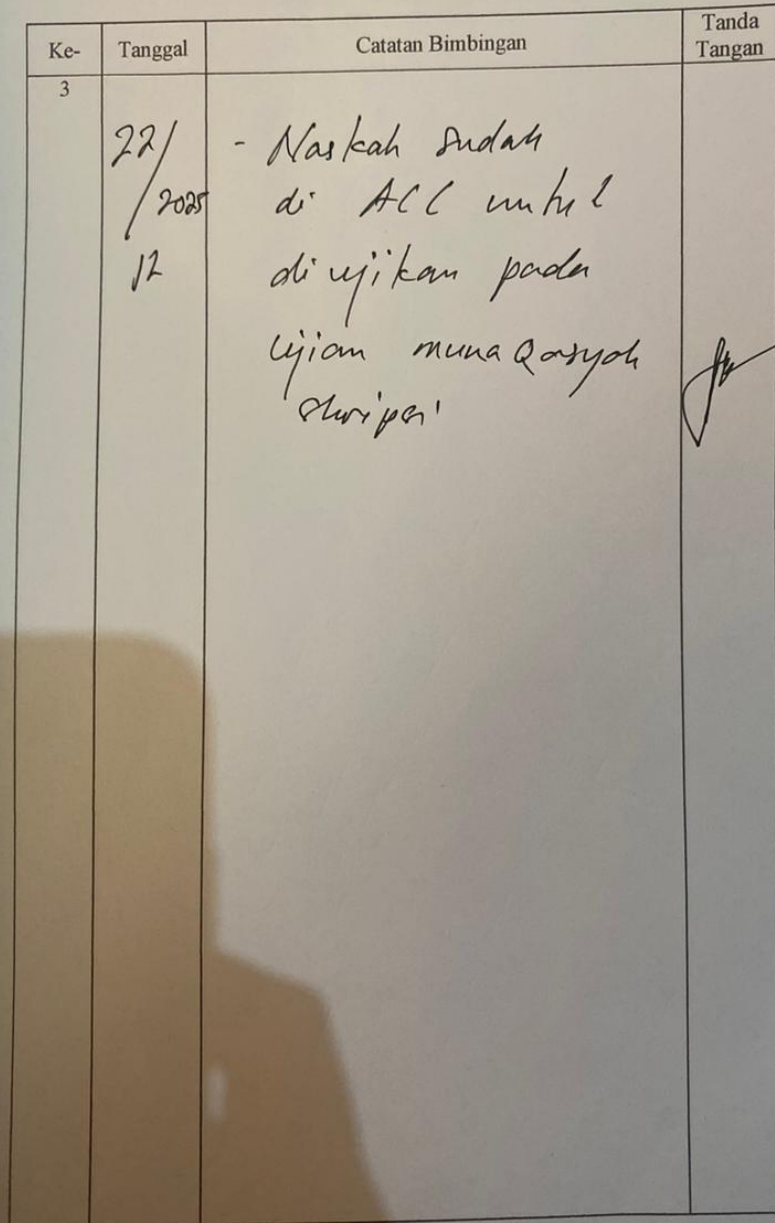 Ke- Tanggal Catatan Bimbingan Tanda Tangan
3
22/12 2025
- Naskah sudah
di ACC untuk
diujikan pada
Ujian munaQasyah
skripsi